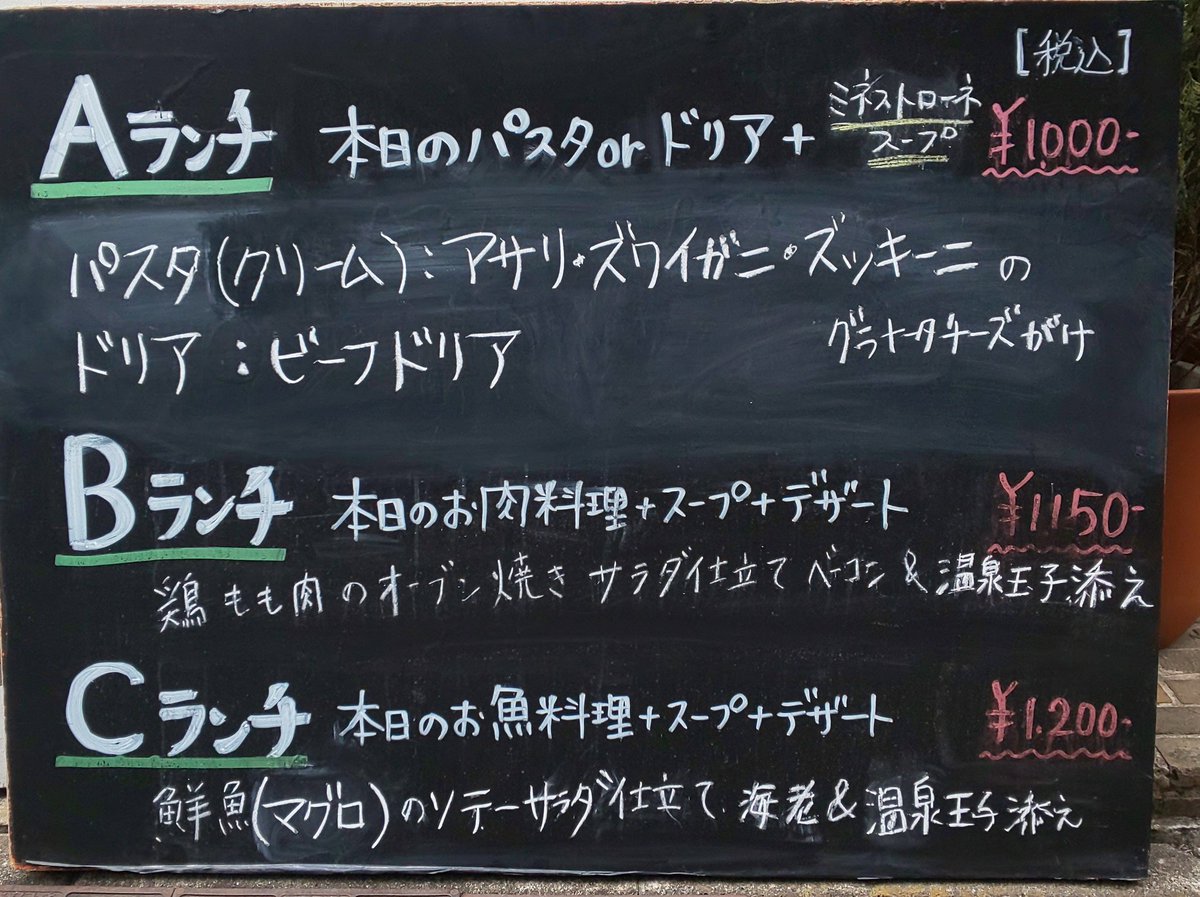 [税込]
Aランチ 本日のパスタorドリア+ミネストローネスープ ¥1000-
パスタ(クリーム):アサリ・ズワイガニ・ズッキーニの
グラナータチーズがけ
ドリア:ビーフドリア
Bランチ 本日のお肉料理+スープ+デザート ¥1150-
鶏もも肉のオーブン焼き サラダ仕立て ベーコン&温泉玉子添え
Cランチ 本日のお魚料理+スープ+デザート ¥1.200-
鮮魚(マグロ)のソテーサラダ仕立て 海老&温泉玉子添え